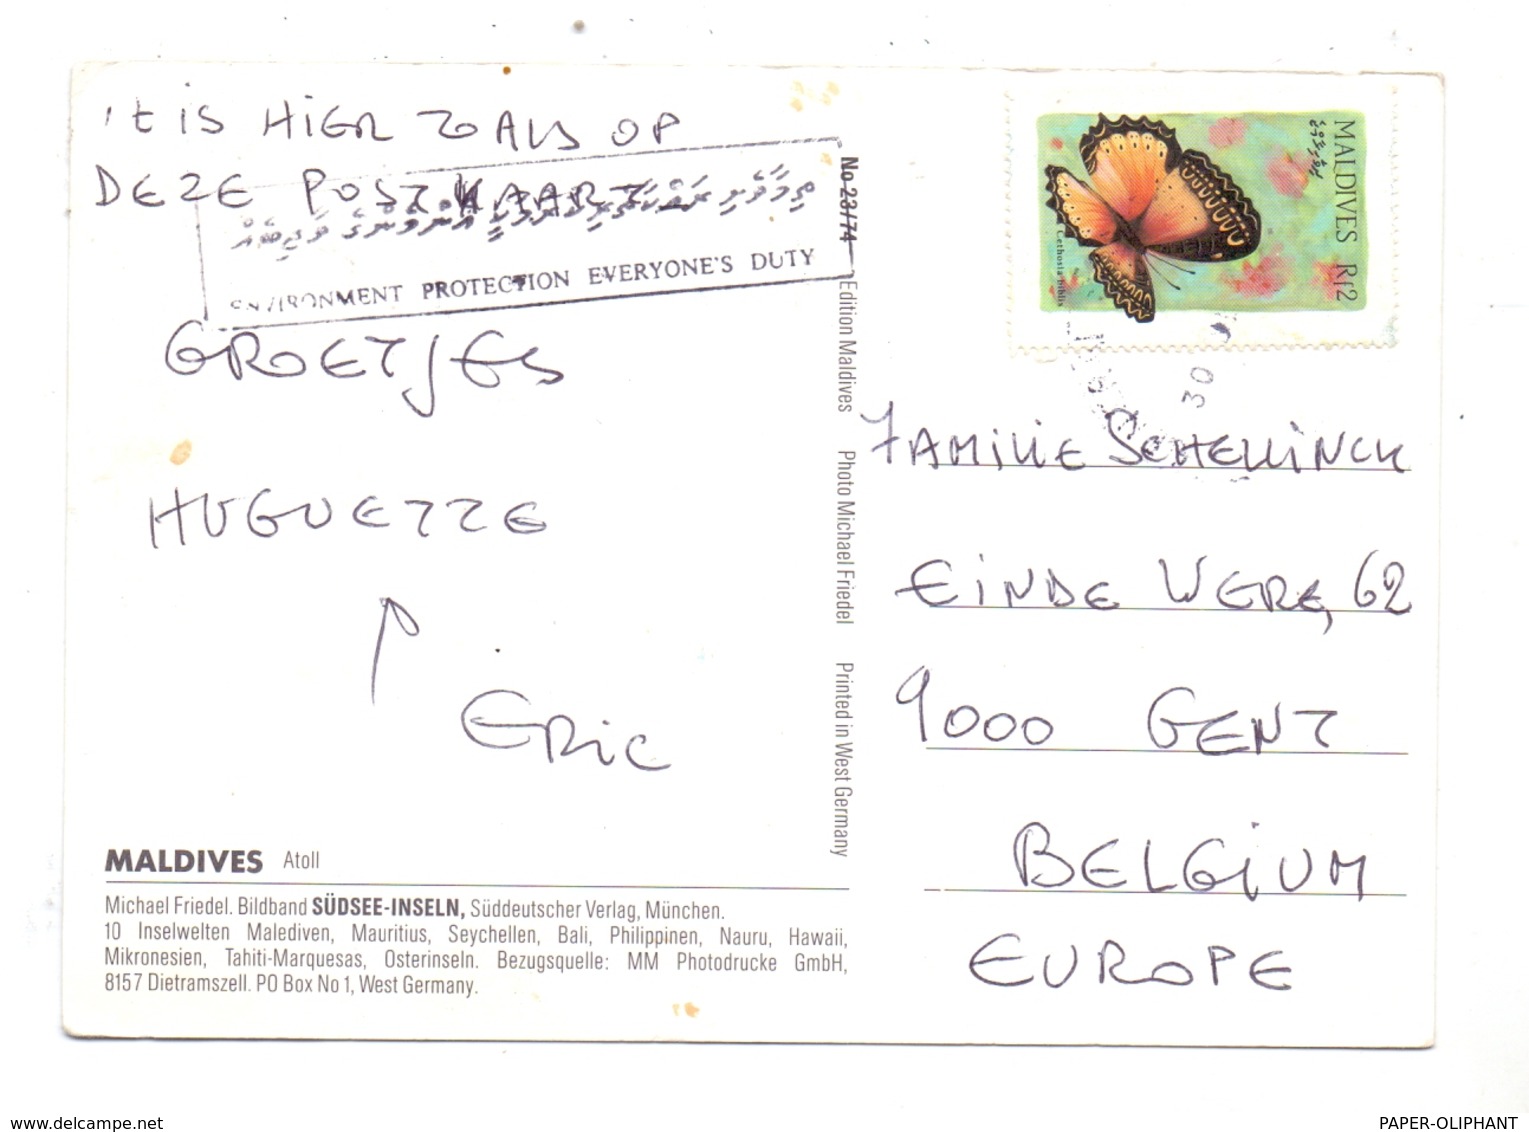 't is HiER ZOALS OP
DEZE POSTKAART
ENVIRONMENT PROTECTION EVERYONE'S DUTY
GROETJES
HUGUETTE
ERiC
MALDIVES Atoll
Michael Friedel. Bildband SÜDSEE-INSELN, Süddeutscher Verlag, München.
10 Inselwelten Malediven, Mauritius, Seychellen, Bali, Philippinen, Nauru, Hawaii,
Mikronesien, Tahiti-Marquesas, Osterinseln. Bezugsquelle: MM Photodrucke GmbH,
8157 Dietramszell. PO Box No 1, West Germany.
No 23/74 Edition Maldives Photo Michael Friedel Printed in West Germany
MALDIVES Rf2
Cethosia biblis
30
FAMILIE SCHELLINCK
EINDE WERE, 62
9000 GENT
BELGIUM
EUROPE
www.delcampe.net
PAPER-OLIPHANT